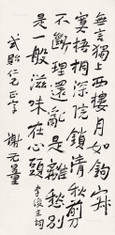 無言獨上西樓月如鉤寂
寞梧桐深院鎖清秋剪
不斷理還亂是離愁別
是一般滋味在心頭 李後主詞
仁兄正字 謝无量